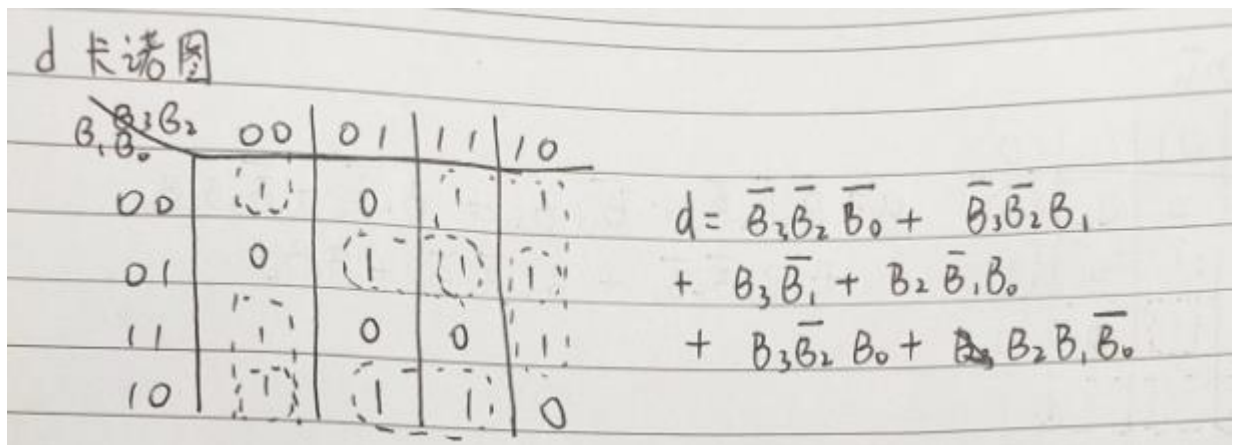 d 卡诺图
B₃B₂ 00 01 11 10
B₁B₀
00 1 0 1 1
01 0 1 1 1
11 1 0 0 1
10 1 1 1 0
d = B̅₃B̅₂B̅₀ + B̅₃B̅₂B₁
+ B₃B̅₁ + B₂B̅₁B₀
+ B₃B̅₂B₀ + B₂B₁B̅₀